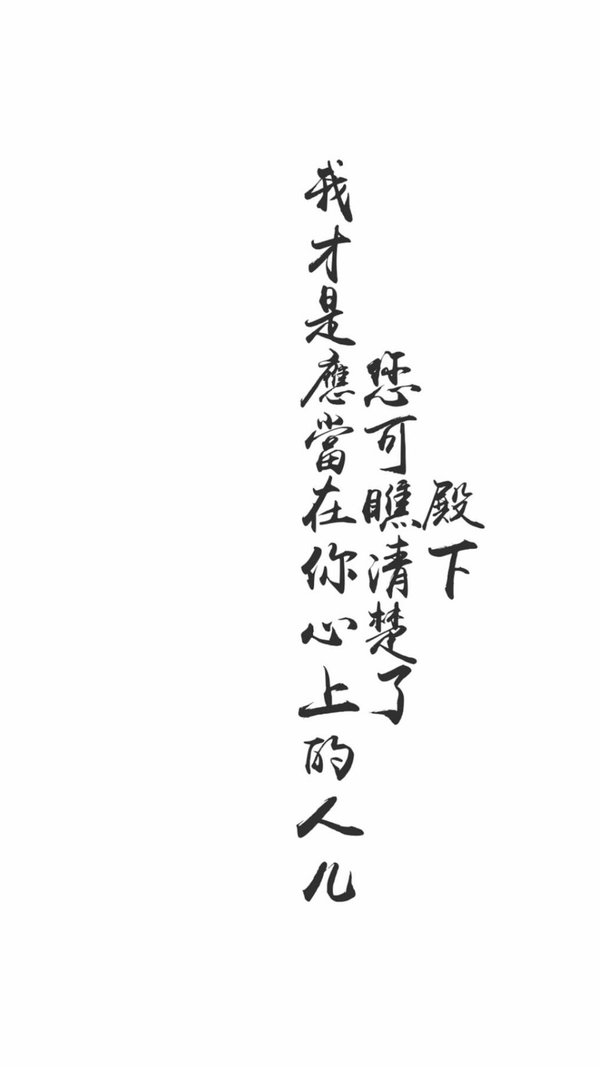 殿下
您可瞧清楚了
我才是應當在你心上的人儿